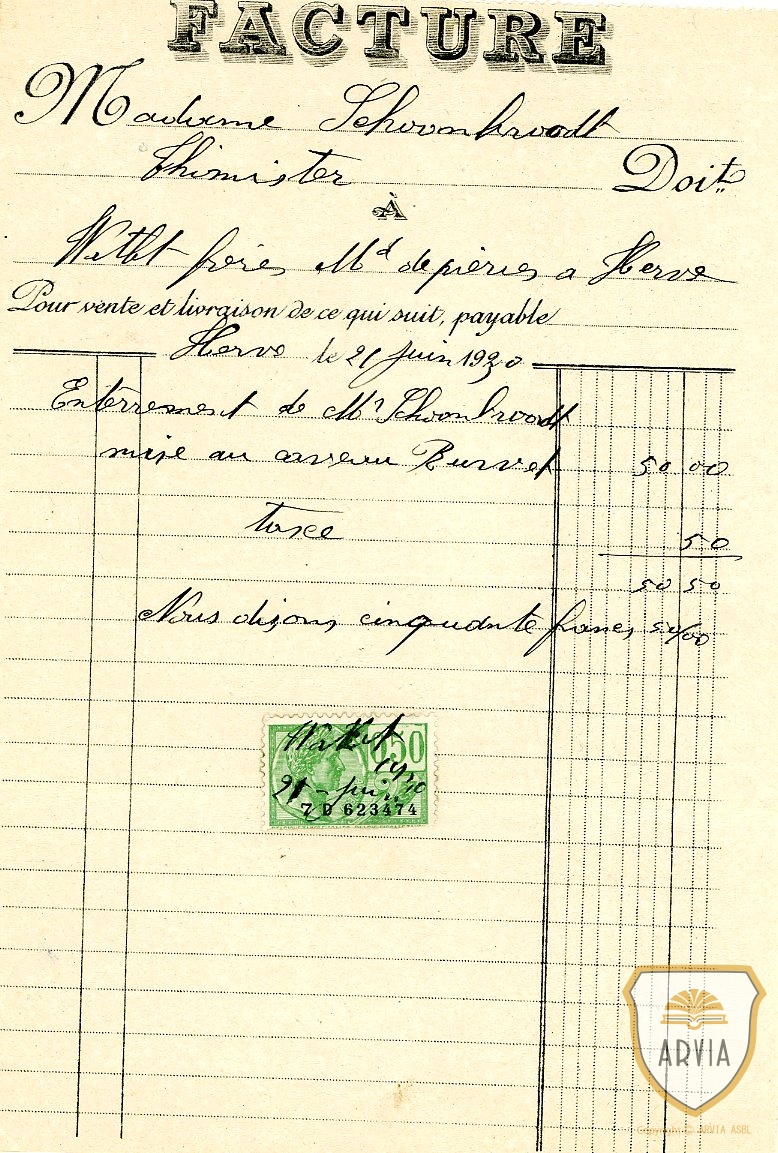 FACTURE
Madame Schoonbroodt
Thimister Doit
À
Wathlet frères Md de pières a Herve
Pour vente et livraison de ce qui suit, payable
Herve le 21 juin 1930
Enterrement de Mr Schoonbroodt
mise au caveau 50 00
taxe 50
50 50
Nous disons cinquante francs 50/00
0f50
21 - juin
7 D 623474
ARVIA
Copyright © ARVIA ASBL